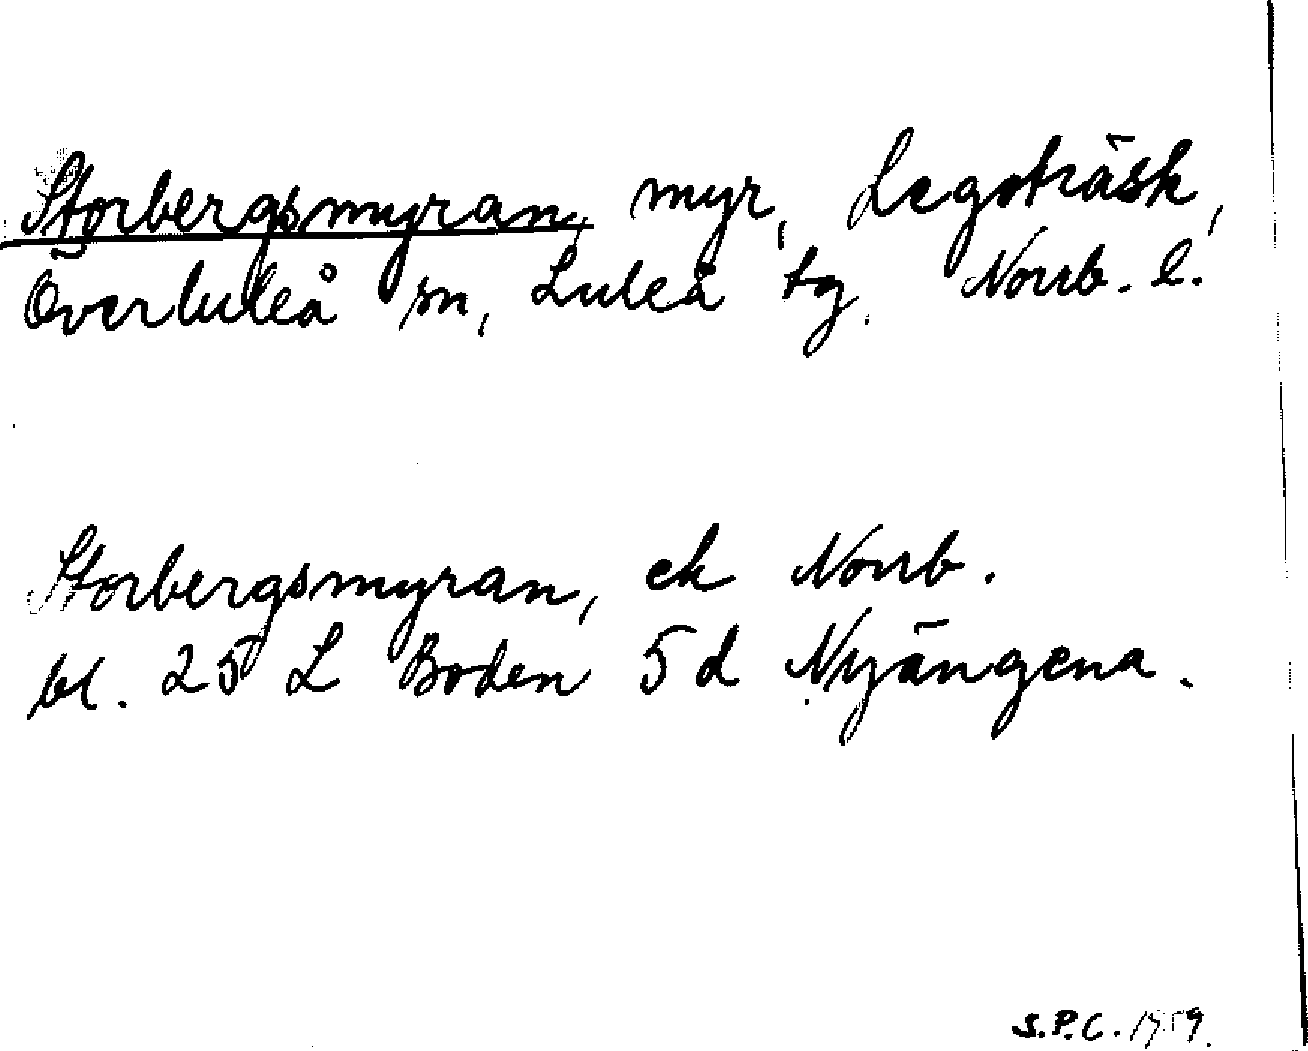 Storbergsmyran, myr, Legoträsk,
Överluleå sn, Luleå tg. Norrb. l.
Storbergsmyran, ek Norrb.
bl. 25 L Boden 5 d Nyängena.
S.P.C. 1959.